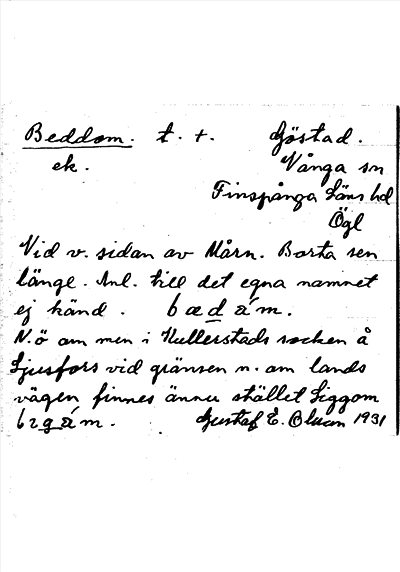 Beddom. t. +. Göstad.
ek. Vånga sn
Finspånga läns hd
Ögl
Vid v. sidan av Mårn. Borta sen
länge. Anl. till det egna namnet
ej känd. bædám.
N.ö om men i Kullerstads socken å
Ljusfors vid gränsen n. om lands
vägen finnes ännu stället Liggom
Gustaf E. Oluon 1931